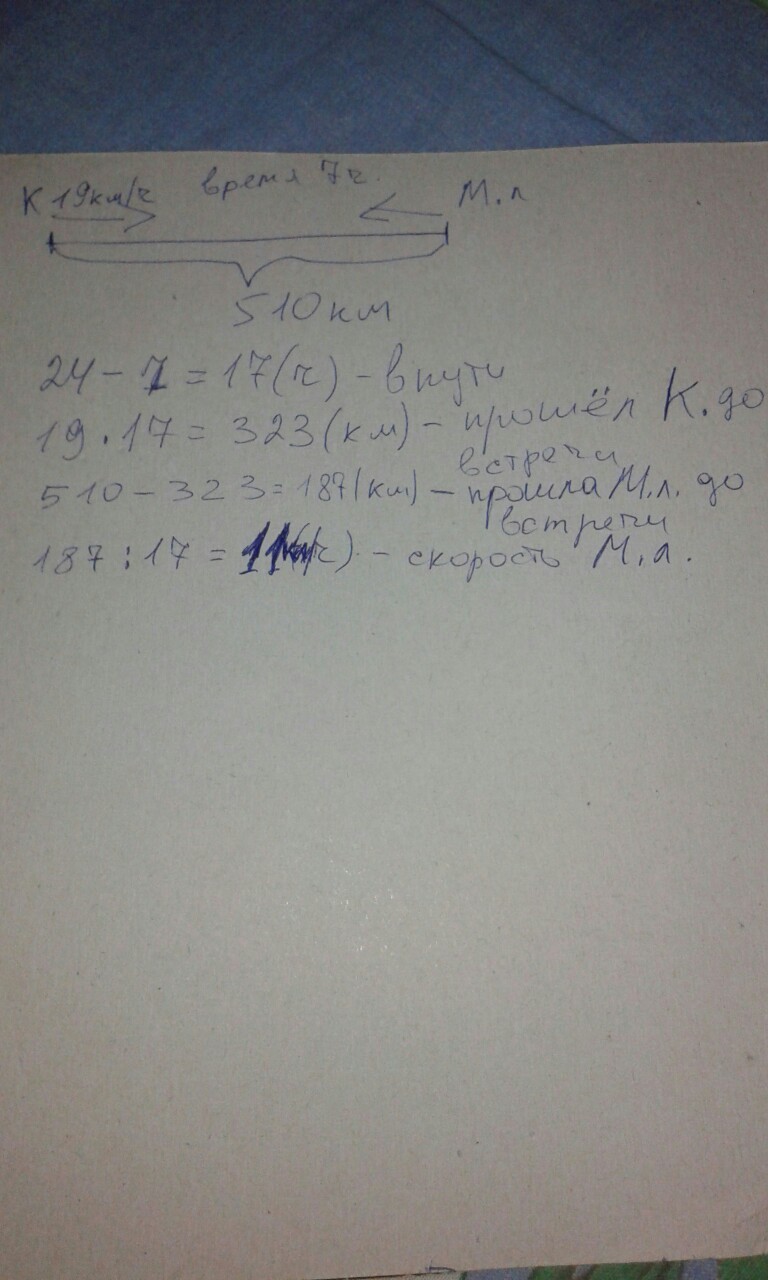 К 19км/ч время 7ч. М.л
510км
24-7=17(ч) - в пути
19.17=323(км) - прошёл К. до
встречи
510-323=187(км) - прошла М.л. до
встречи
187:17=11(км/ч). - скорость М.л.